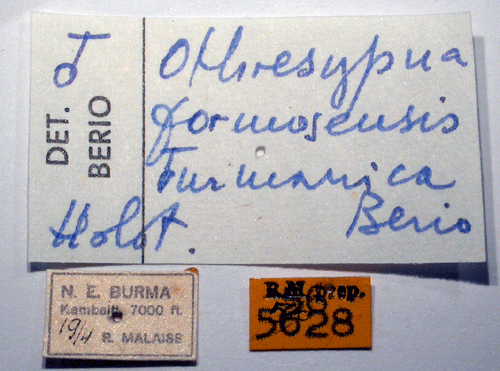 ♂ Othresypna
formosensis
furmanica
Holot. Berio
DET.
BERIO
N. E. BURMA
Kambaiti, 7000 ft.
19/4 R. MALAISE
R.M. prep.
5628